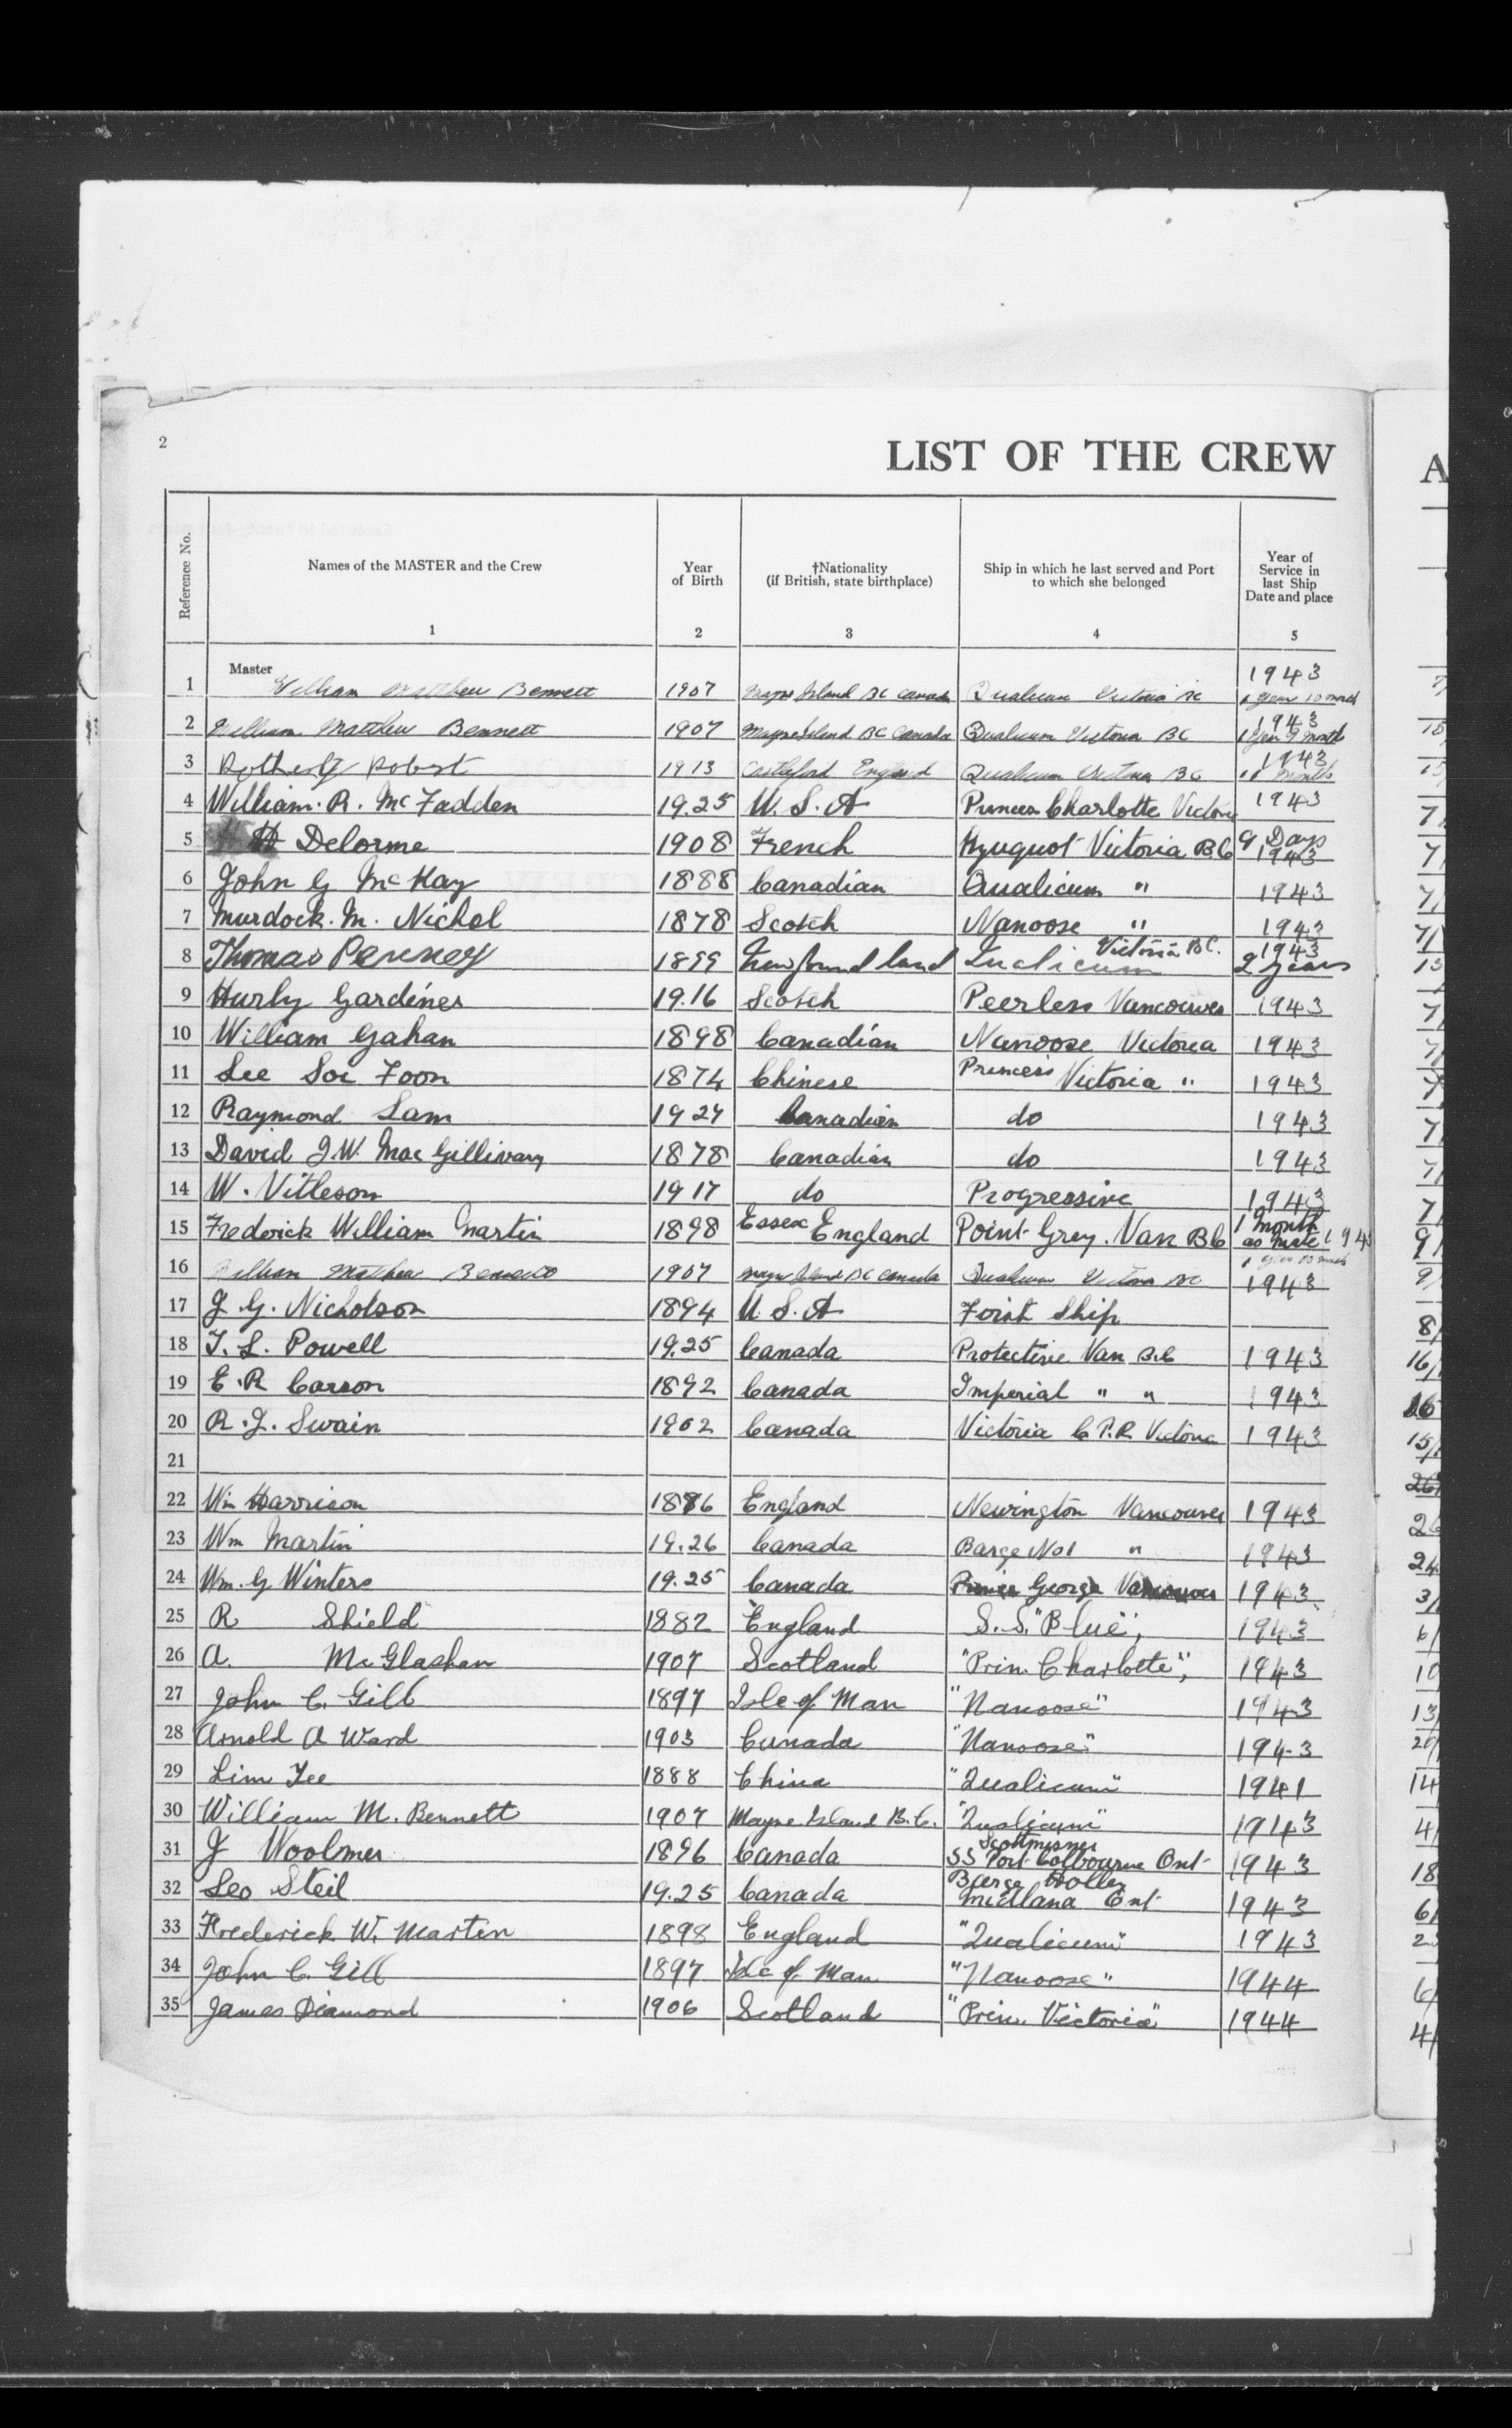 2
LIST OF THE CREW
A
Reference No.
Names of the MASTER and the Crew
Year of Birth
†Nationality (if British, state birthplace)
Ship in which he last served and Port to which she belonged
Year of Service in last Ship Date and place
1 2 3 4 5
Master
1 William Matthew Bennett 1907 Mayne Island BC Canada Qualicum Victoria BC 1943 1 year 10 month
2 William Matthew Bennett 1907 Mayne Island BC Canada Qualicum Victoria BC 1943 1 year 9 month
3 Robert 1913 Castleford England Qualicum Victoria BC 1943 11 month
4 William. R. McFadden 19.25 U.S.A Princess Charlotte Victoria 1943
5 H Delorme 1908 French Victoria BC 9 Days 1943
6 John G McKay 1888 Canadian Qualicum " 1943
7 Murdock. M. Nichol 1878 Scotch Nanoose " 1943
8 Thomas Penney 1899 Newfoundland Qualicum Victoria B.C. 1943 2 years
9 Hurly Gardiner 19.16 Scotch Peerless Vancouver 1943
10 William Gahan 1898 Canadian Nanoose Victoria 1943
11 Lee Soi Foon 1874 Chinese Princess Victoria " 1943
12 Raymond Lam 1927 Canadian do 1943
13 David J.W. MacGillivary 1878 Canadian do 1943
14 W. Vitleson 1917 do Progressive 1943
15 Frederick William Martin 1898 Essex England Point Grey. Van BC 1 Month as mate 1943
16 William Mathew Bennett 1907 Mayne Island BC Canada Qualicum Victoria BC 1 year 10 month 1943
17 J.G. Nicholson 1894 U.S.A First Ship
18 T. L. Powell 19.25 Canada Protective Van B.C 1943
19 E.R Carson 1892 Canada Imperial " " 1943
20 R.J. Swain 1902 Canada Victoria C.P.R. Victoria 1943
21
22 Wm Harrison 1886 England Newington Vancouver 1943
23 Wm Martin 19.26 Canada Barge No1 " 1943
24 Wm. G Winters 19.25 Canada Prince George Vancouver 1943
25 R Shield 1882 England S.S. "Blue", 1943
26 A. McGlashan 1907 Scotland "Prin. Charlotte", 1943
27 John C. Gill 1897 Isle of Man "Nanoose" 1943
28 Arnold A Ward 1903 Canada "Nanoose" 1943
29 Lim Yee 1888 China "Qualicum" 1941
30 William M. Bennett 1907 Mayne Island B.C. "Qualicum" 1943
31 J Woolmer 1896 Canada Scottmisner SS Port Colbourne Ont 1943
32 Leo Steil 19.25 Canada Barge Midland Ont 1943
33 Frederick W. Martin 1898 England "Qualicum" 1943
34 John C. Gill 1897 Isle of Man "Nanoose" 1944
35 James Diamond 1906 Scotland "Prin. Victoria" 1944